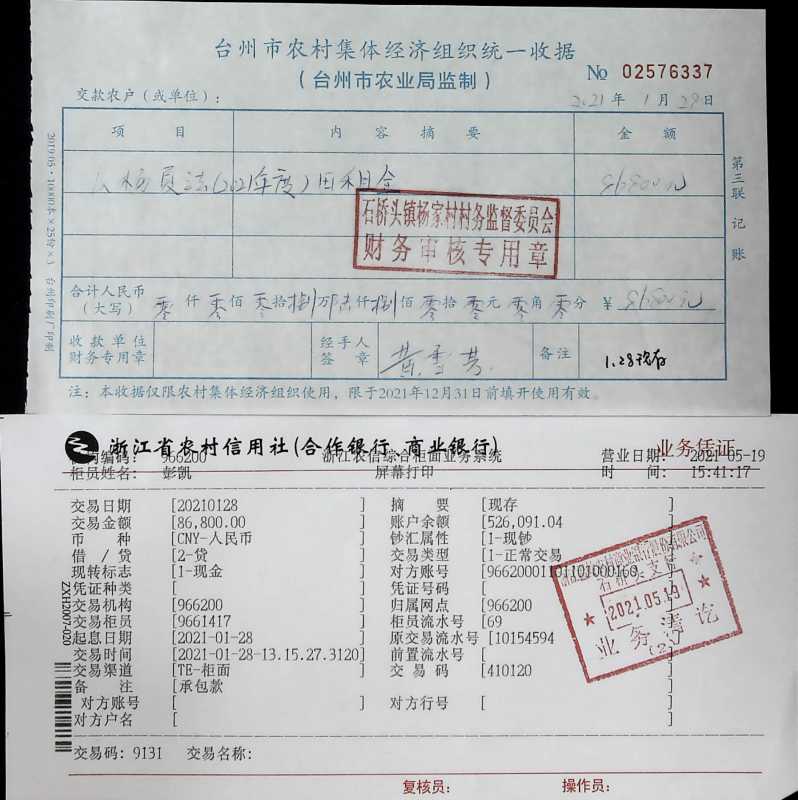 台州市农村集体经济组织统一收据
(台州市农业局监制)
No 02576337
交款农户(或单位):
2021年 1月 29日
项 目 内 容 摘 要 金 额
员 (2021年度)田租金 86800元
石桥头镇杨家村村务监督委员会
财务审核专用章
合计人民币(大写) 零仟零佰零拾捌万陆仟捌佰零拾零元零角零分 ¥ 86800元
收款单位财务专用章
经手人签章 黄
备注 1.28现存
注:本收据仅限农村集体经济组织使用,限于2021年12月31日前填开使用有效。
第三联 记账
2019.05·10000本×25份×3 台州印刷厂印刷
浙江省农村信用社(合作银行、商业银行) 业务凭证
编码: 966200 浙江农信综合柜面业务系统 营业日期: 2021-05-19
柜员姓名: 彭凯 屏幕打印 时 间: 15:41:17
交易日期 [20210128 ] 摘 要 [现存 ]
交易金额 [86,800.00 ] 账户余额 [526,091.04 ]
币 种 [CNY-人民币 ] 钞汇属性 [1-现钞 ]
借 / 贷 [2-贷 ] 交易类型 [1-正常交易 ]
现转标志 [1-现金 ] 对方账号 [96620001101101000160 ]
凭证种类 [ ] 凭证号码 [ ]
交易机构 [966200 ] 归属网点 [966200 ]
交易柜员 [9661417 ] 柜员流水号 [69 ]
起息日期 [2021-01-28 ] 原交易流水号 [10154594 ]
交易时间 [2021-01-28-13.15.27.3120] 前置流水号 [ ]
交易渠道 [TE-柜面 ] 交 易 码 [410120 ]
备 注 [承包款 ]
对方账号 [ ] 对方行号 [ ]
对方户名 [ ]
石桥头支
2021.05.19
业务清讫
(2)
ZXH2007-020
交易码: 9131 交易名称:
复核员: 操作员: